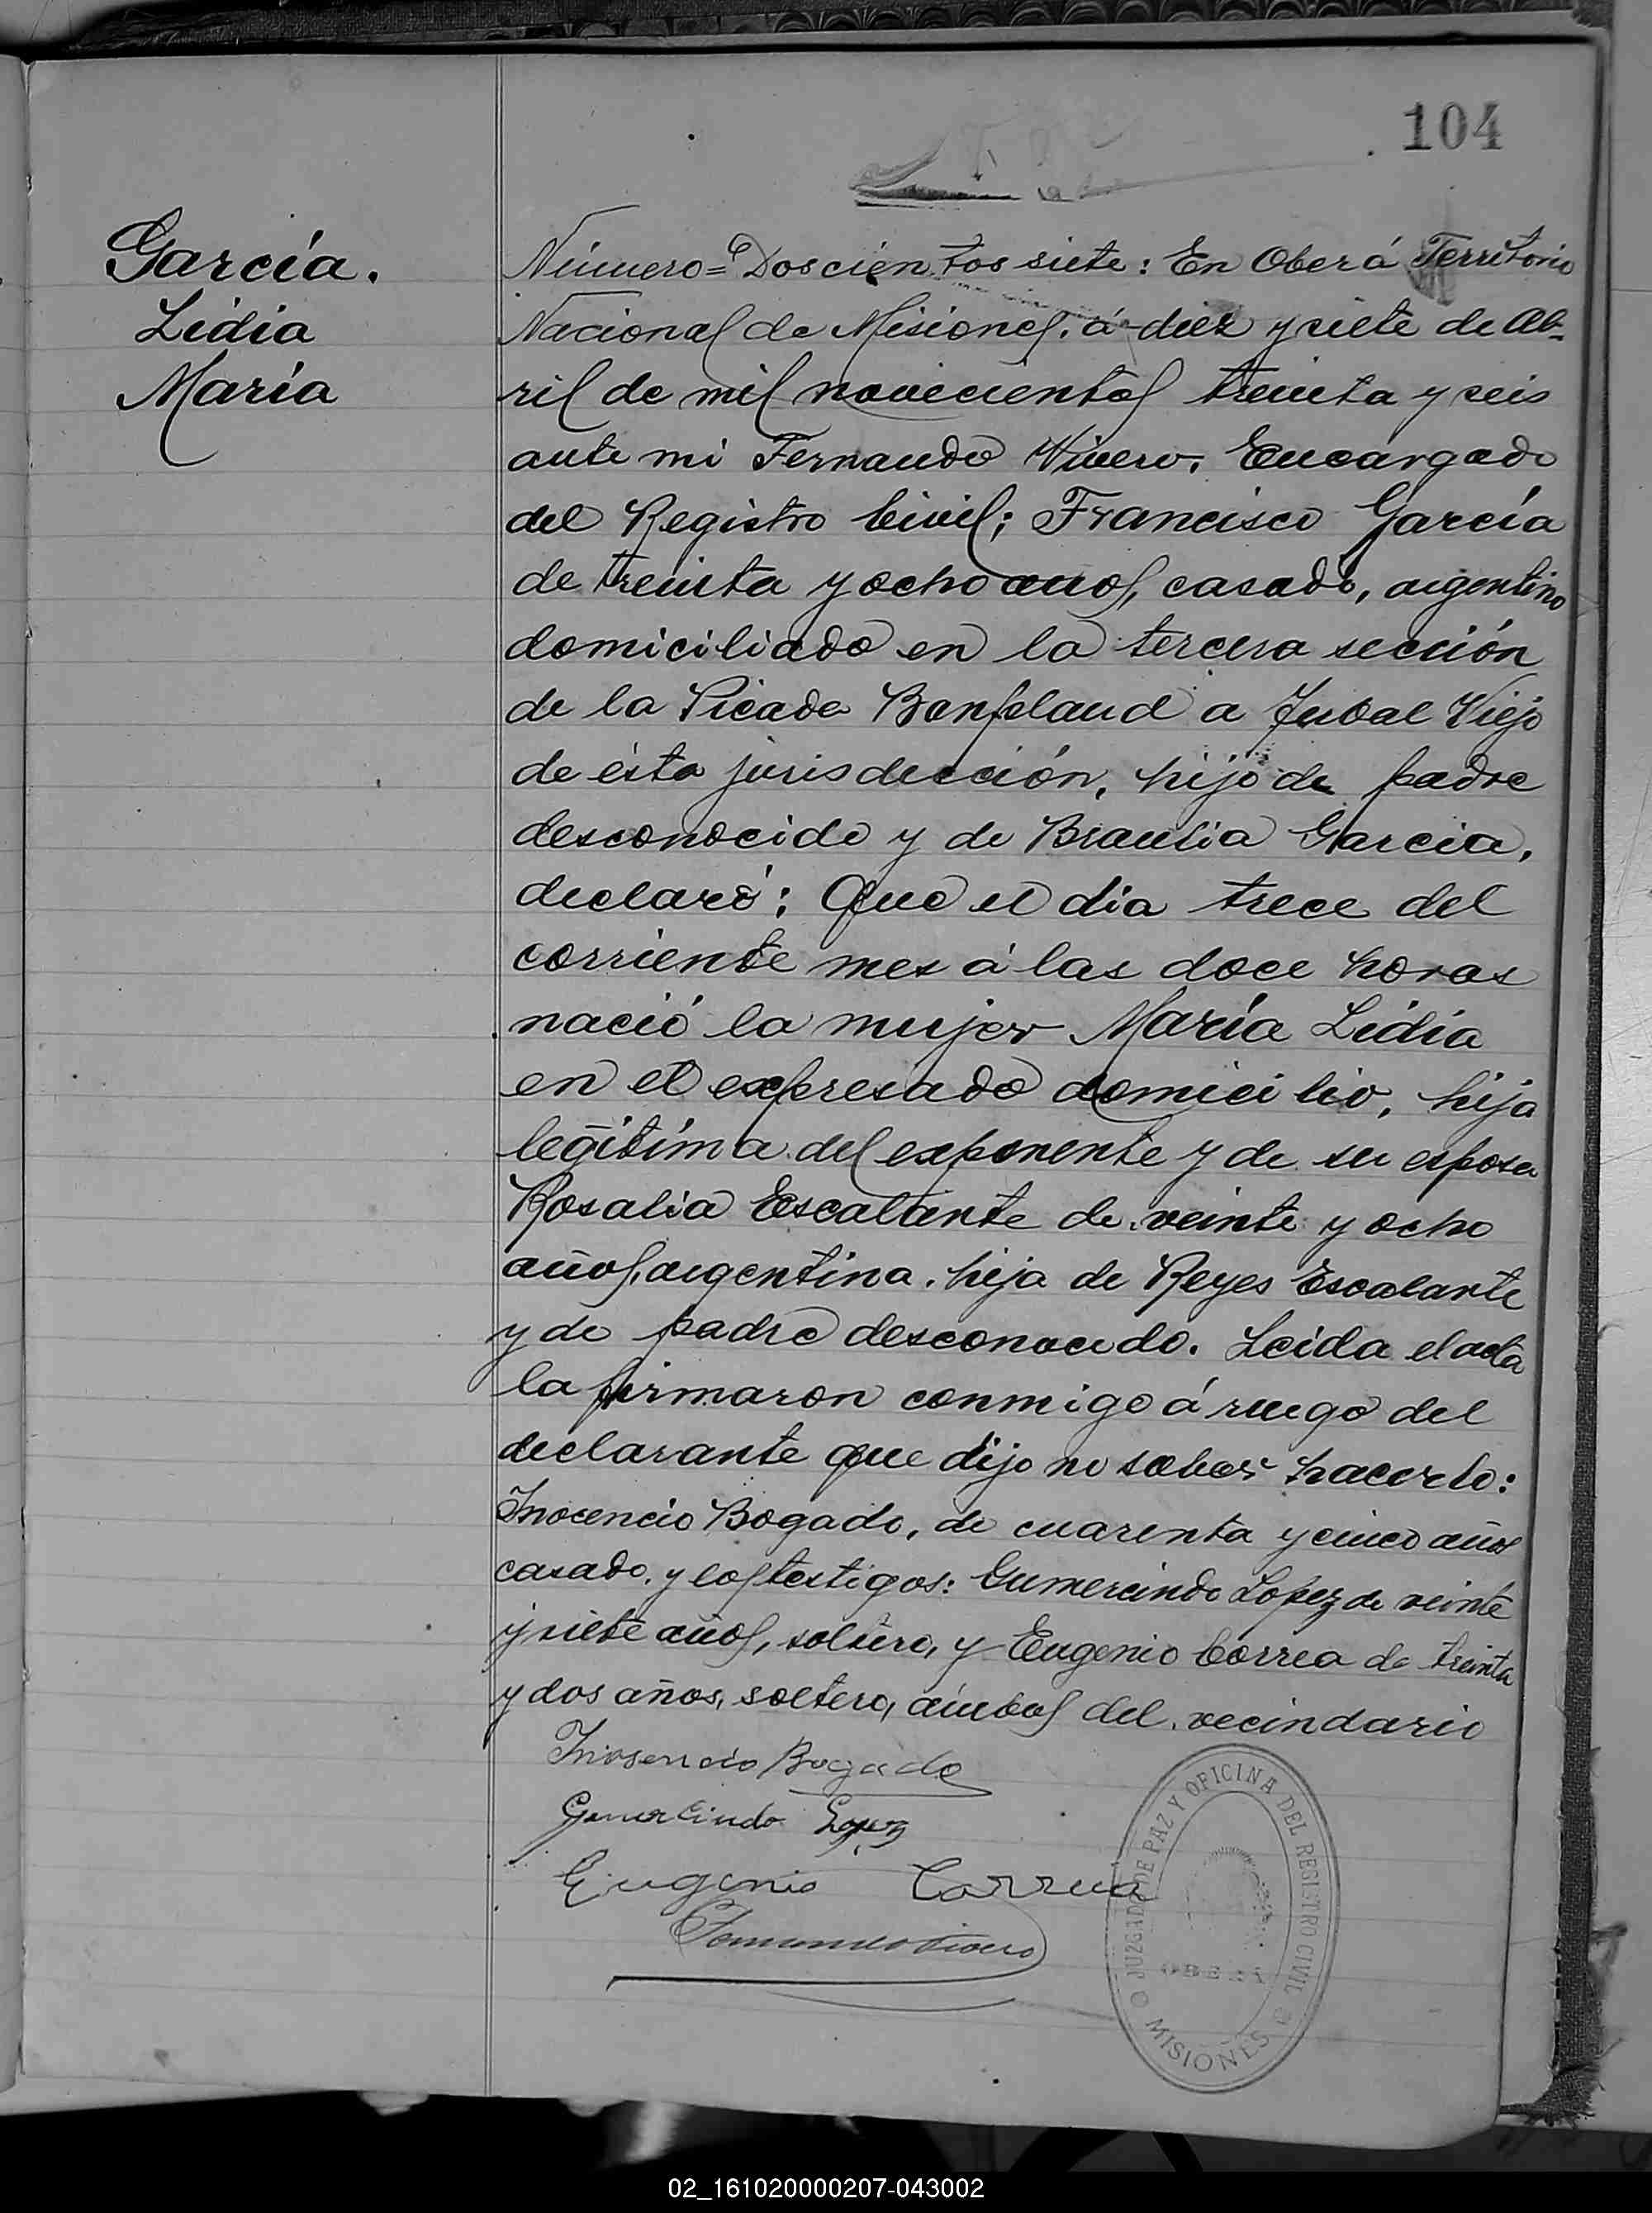 104
García.
Lidia
María
Número = Doscientos siete: En Oberá Territorio
Nacional de Misiones, á diez y siete de Ab-
ril de mil novecientos treinta y seis
ante mi Fernando Vivero, Encargado
del Registro Civil; Francisco García
de treinta y ocho años, casado, argentino
domiciliado en la tercera sección
de la Picada Bonpland a Yerbal Viejo
de ésta jurisdicción, hijo de padre
desconocido y de Braulia Garcia,
declaró: Que el dia trece del
corriente mes á las doce horas
nació la mujer María Lidia
en el expresado domicilio, hija
legítima del exponente y de su esposa
Rosalia Escalante de veinte y ocho
años, argentina, hija de Reyes Escalante
y de padre desconocido. Leida el acta
la firmaron conmigo á ruego del
declarante que dijo no saber hacerlo:
Inocencio Bogado, de cuarenta y cinco años
casado, y los testigos: Gumercindo Lopez de veinte
y siete años, soltero, y Eugenio Correa de treinta
y dos años, soltero, ámbos del vecindario
Inosencio Bogado
Gumercindo Lopez
Eugenio Correa
Fernando Vivero
JUZGADO DE PAZ Y OFICINA DEL REGISTRO CIVIL
OBERÁ
MISIONES
02_161020000207-043002